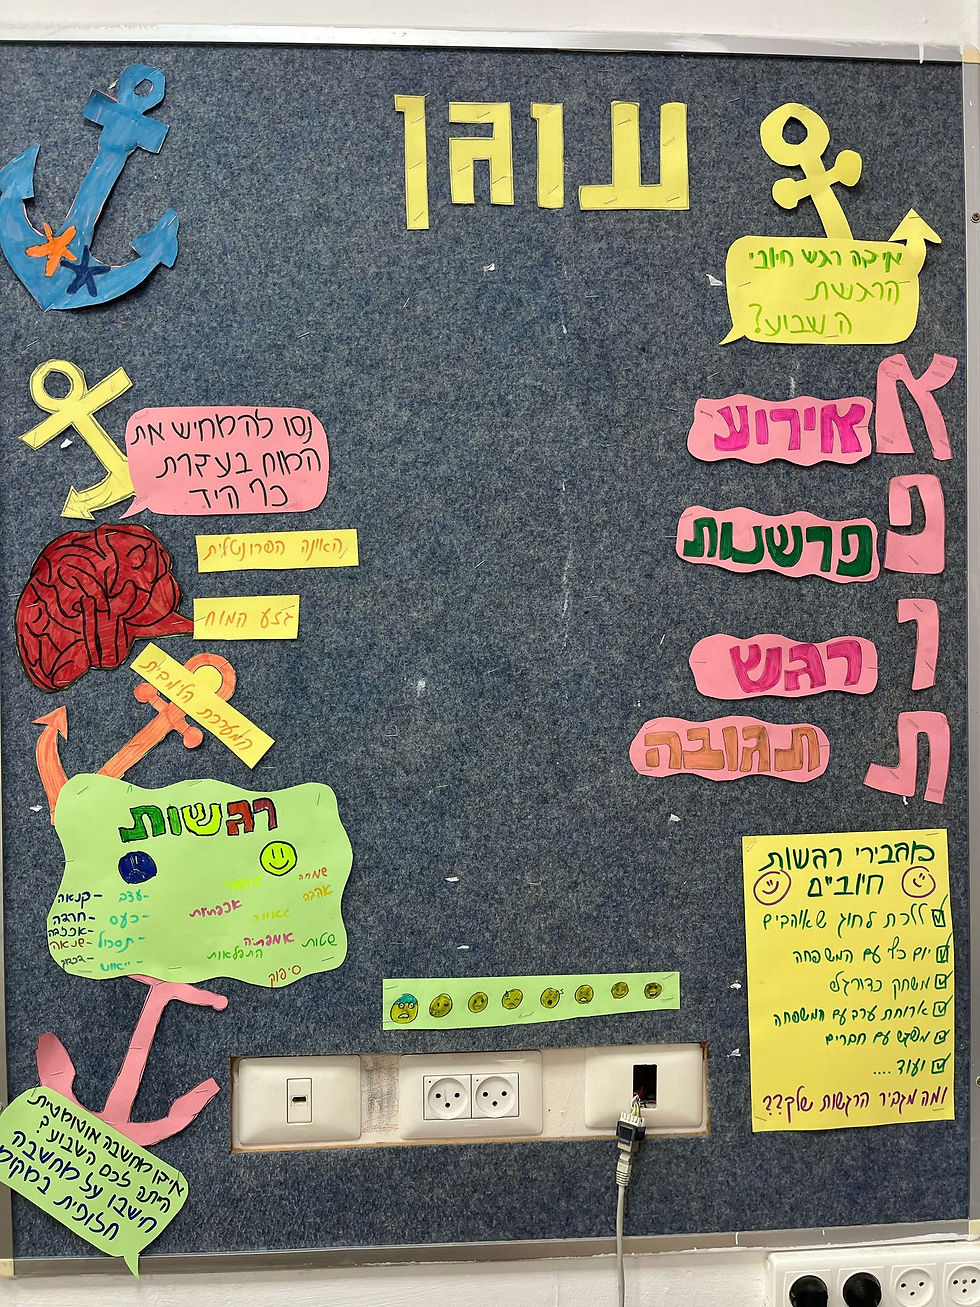 עוגן
איזה רגש חיובי
הרגשת
השבוע?
א
אירוע
פ
פרשנות
ר
רגש
ת
תגובה
מגבירי רגשות
חיוביים
ללכת לחוג שאוהבים
יום כיף עם המשפחה
משחק כדורגל
ארוחת ערב עם המשפחה
מפגש עם חברים
ועוד ....
ומה מגביר הרגשות שלך??
נסו להמחיש את
המוח בעזרת
כף היד
האונה הפרונטלית
גזע המוח
המערכת הלימבית
רגשות
שמחה
אושר
אהבה
אכפתיות
גאווה
אמפתיה
שטות
התפלאות
סיפוק
-עצב
-כעס
-תסכול
-ייאוש
-קנאה
-חרדה
-אכזבה
-שנאה
איזו מחשבה אוטומטית
הייתה לכם השבוע?
חישבו על מחשבה
חלופית במקומה